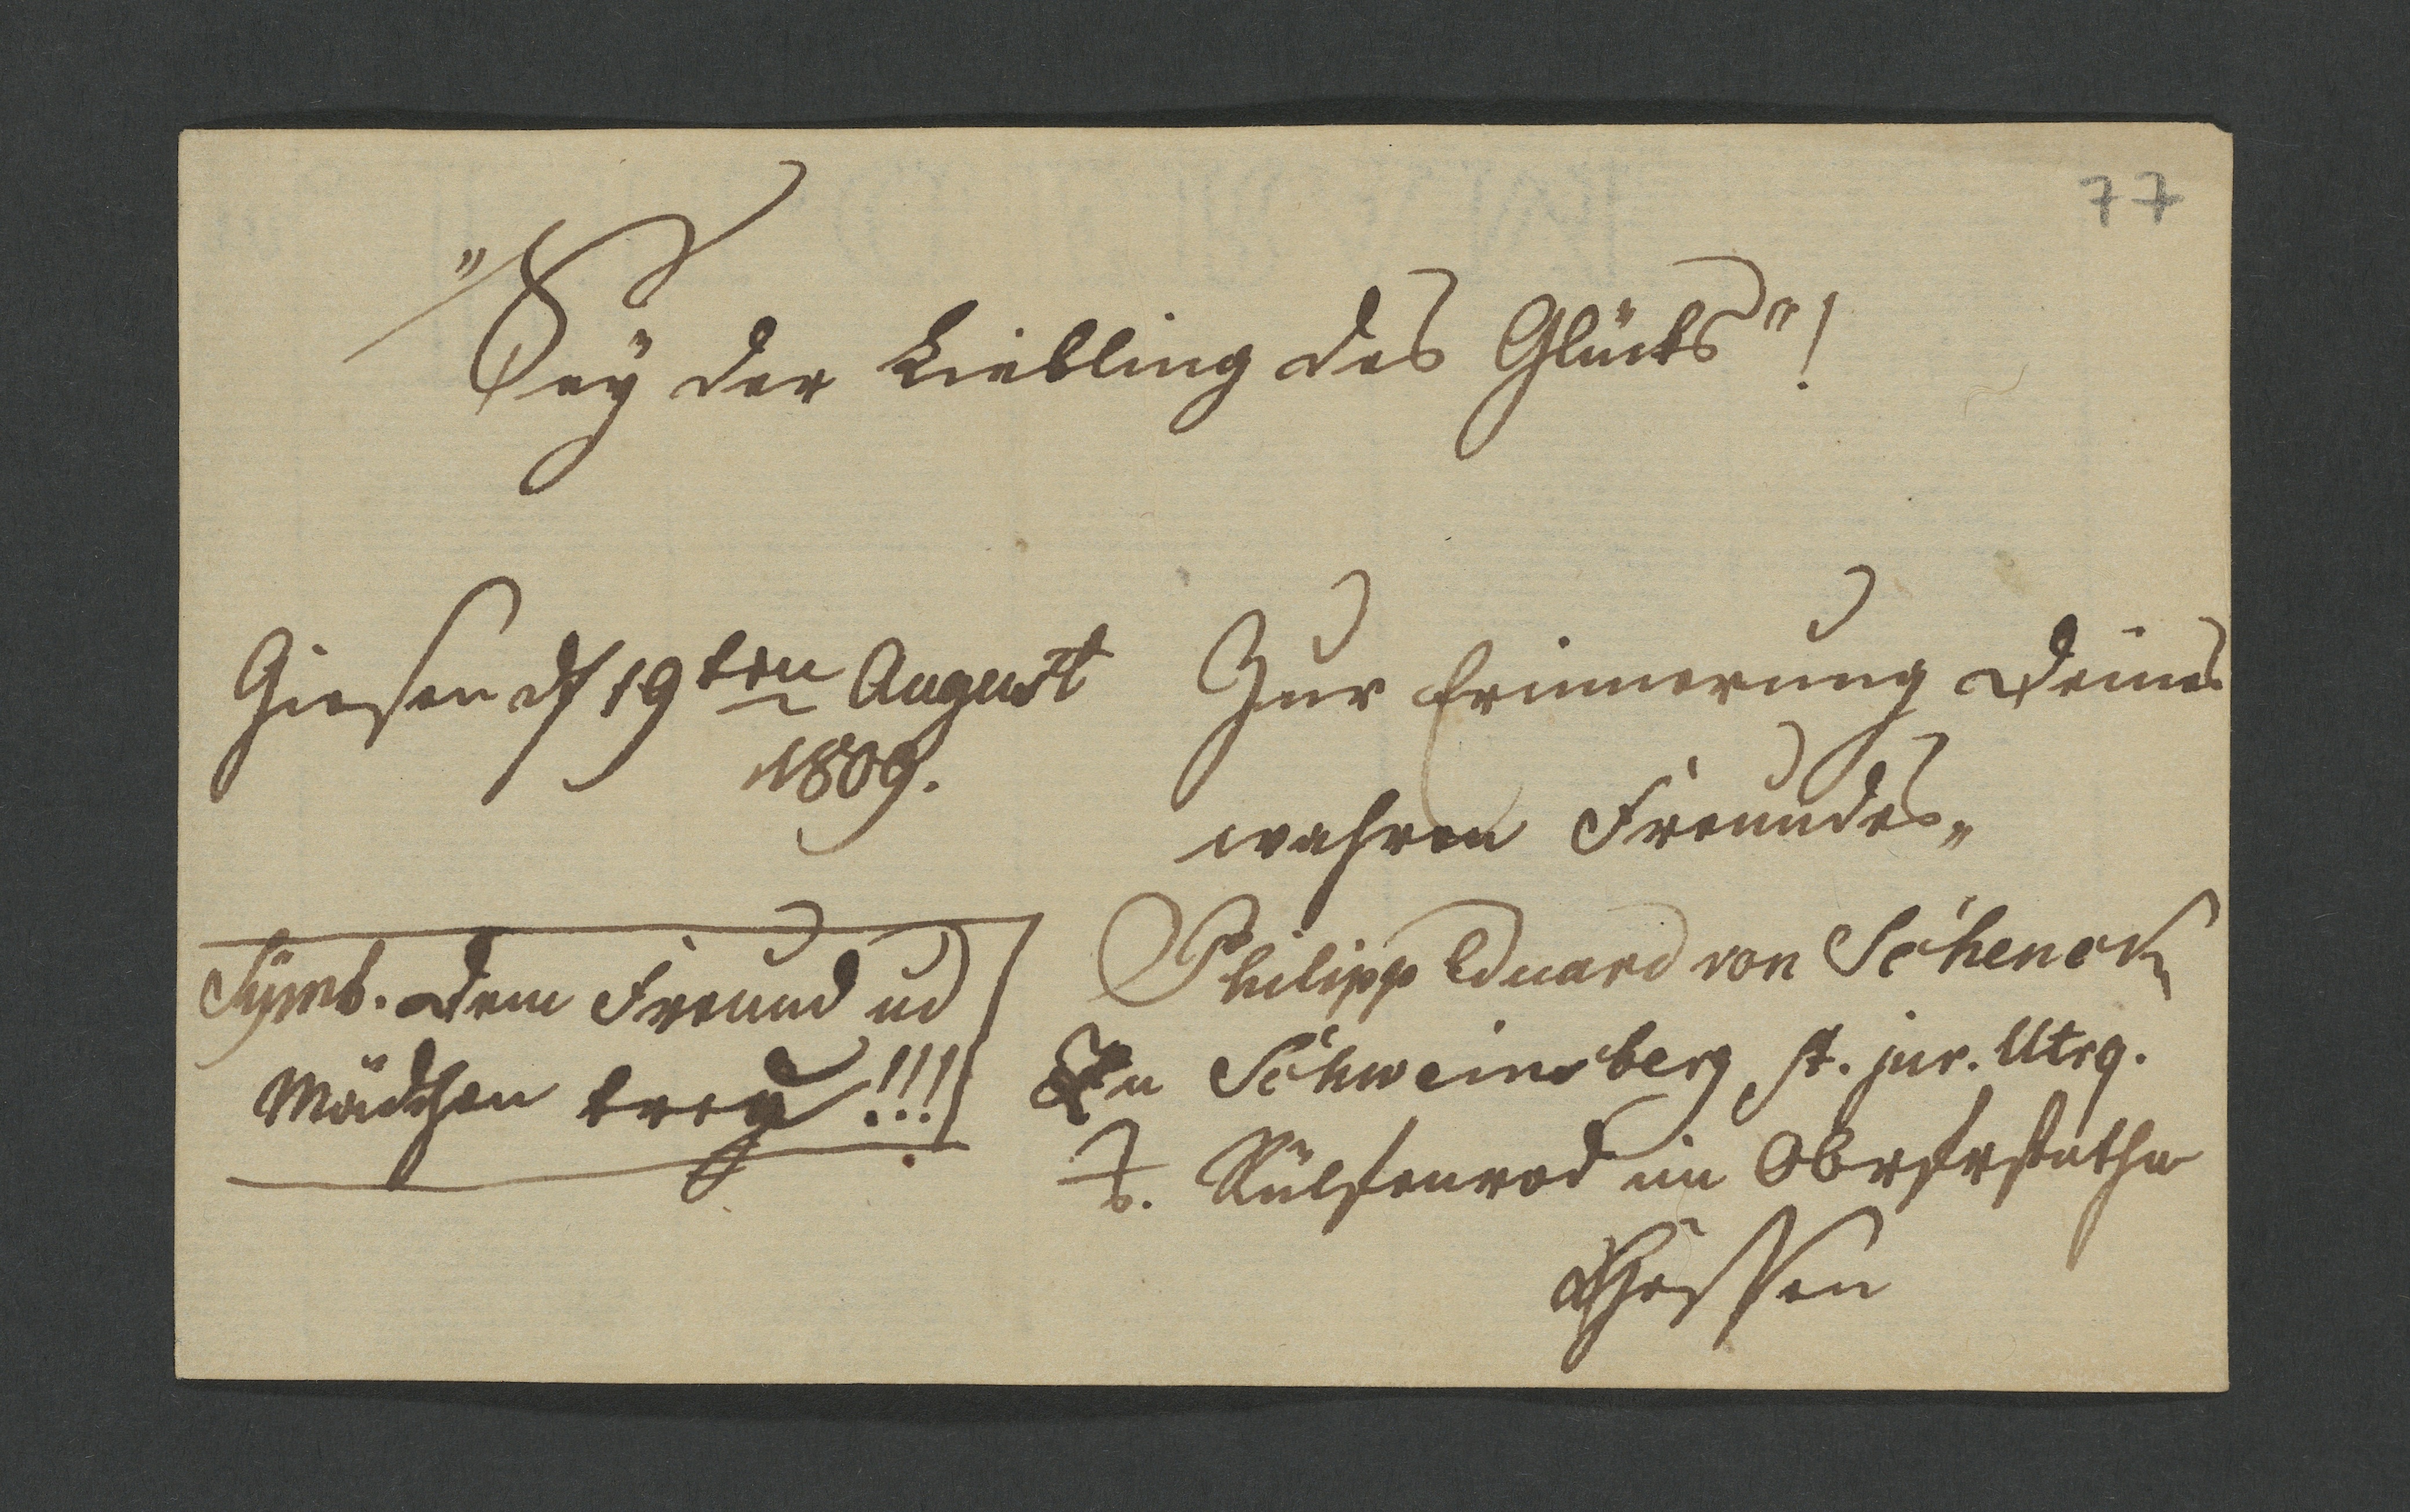 77
"Sey der Liebling des Glücks"!
Giesen d 19ten August
1809.
Zur Erinnerung Deines
wahren Freundes„
Philipp Eduard von Schenck
Zu Schweinsberg st. jur. Utrq.
Symb. Dem Freund ud
Mädchen trey!!!
z. Rülfenrod im
Hessen